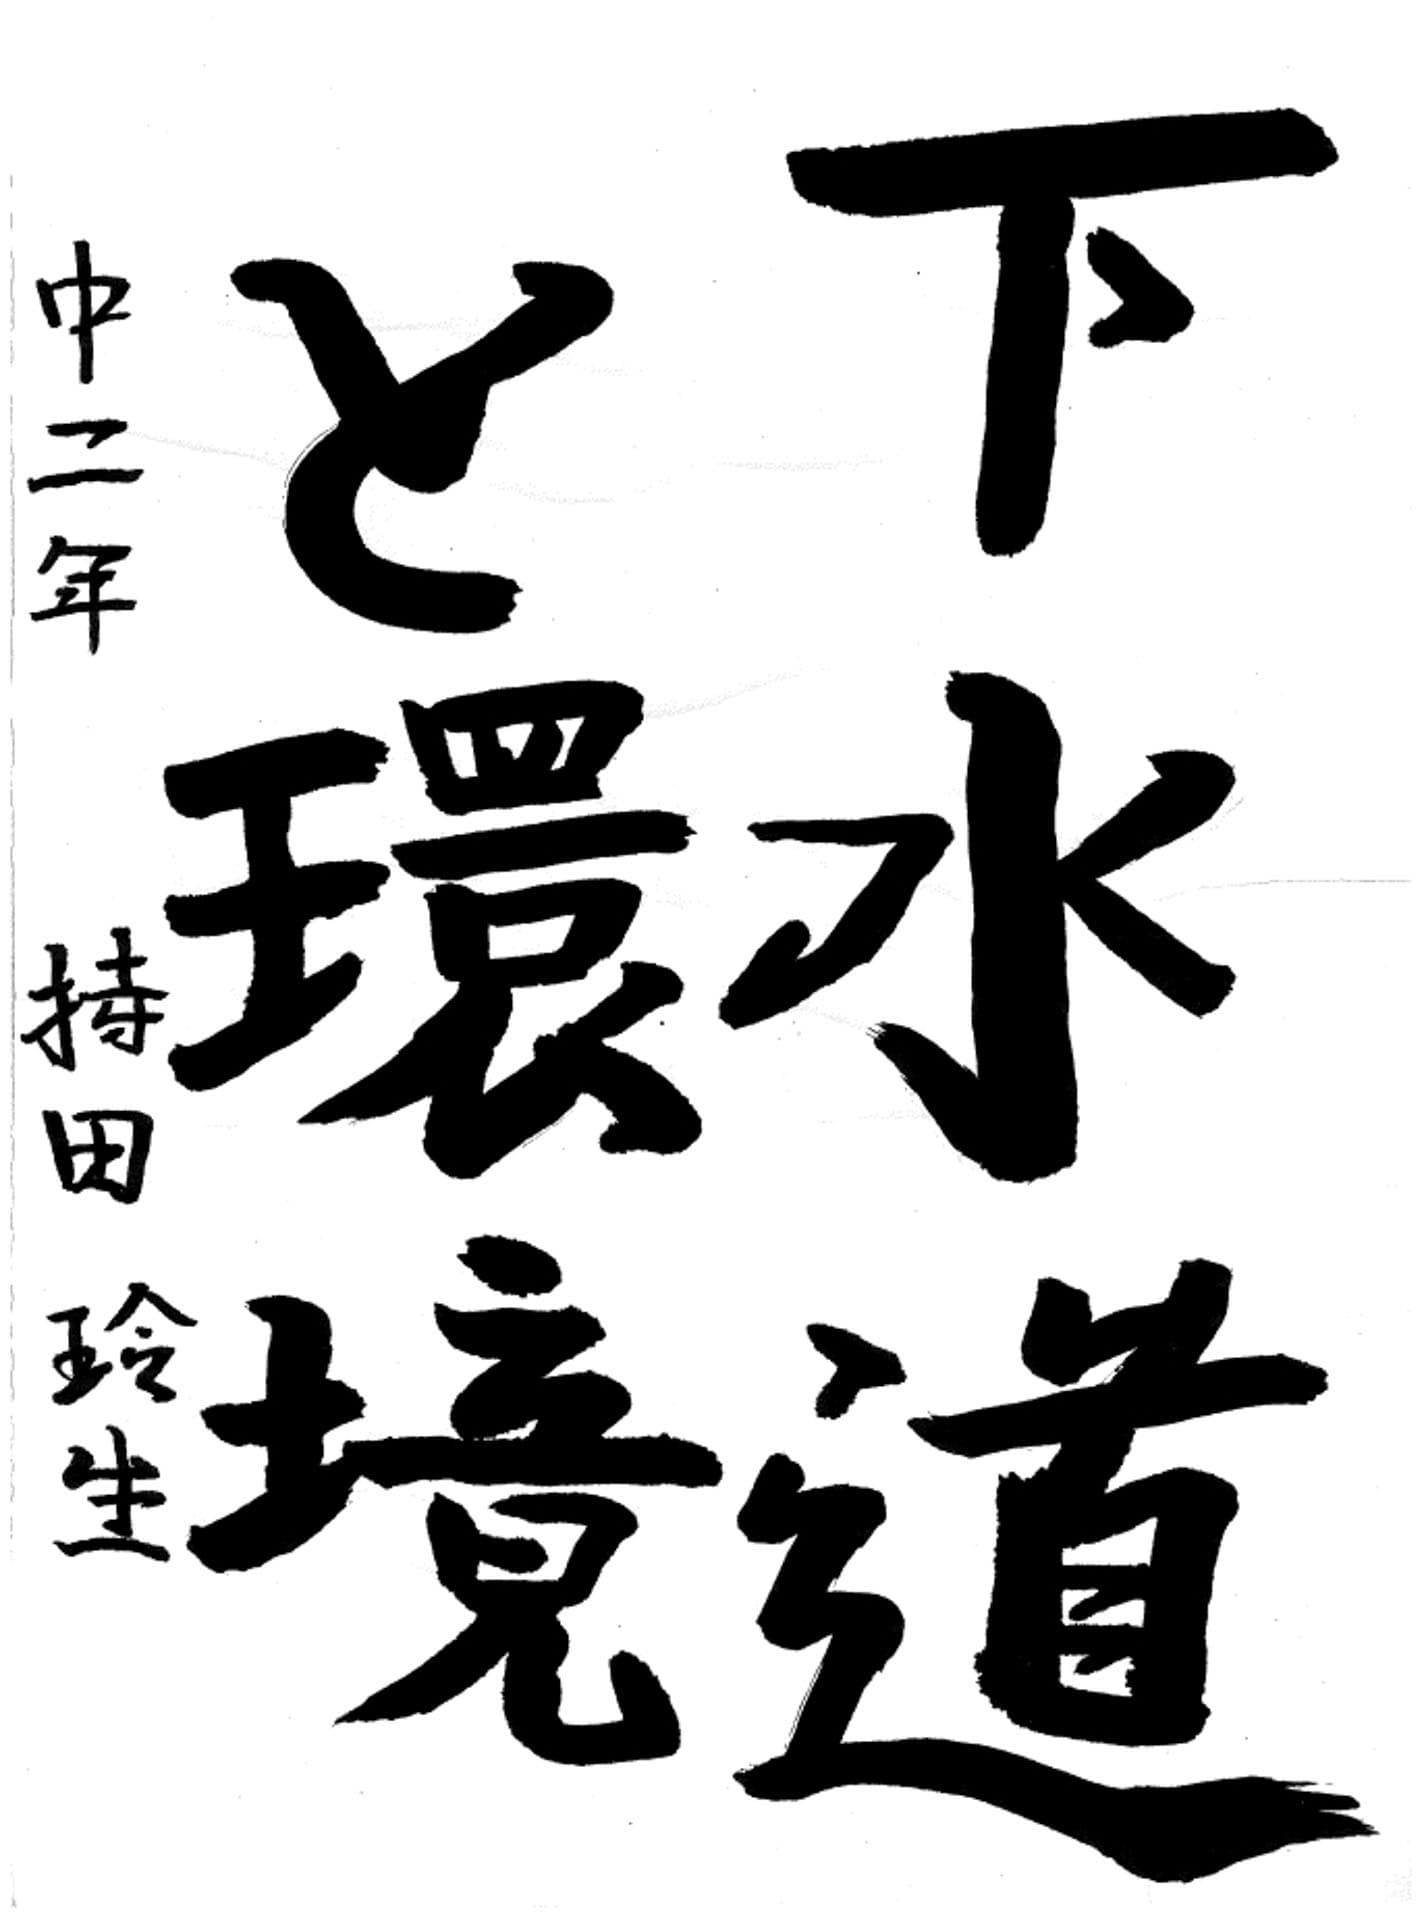 下水道
と環境
中二年 持田玲生